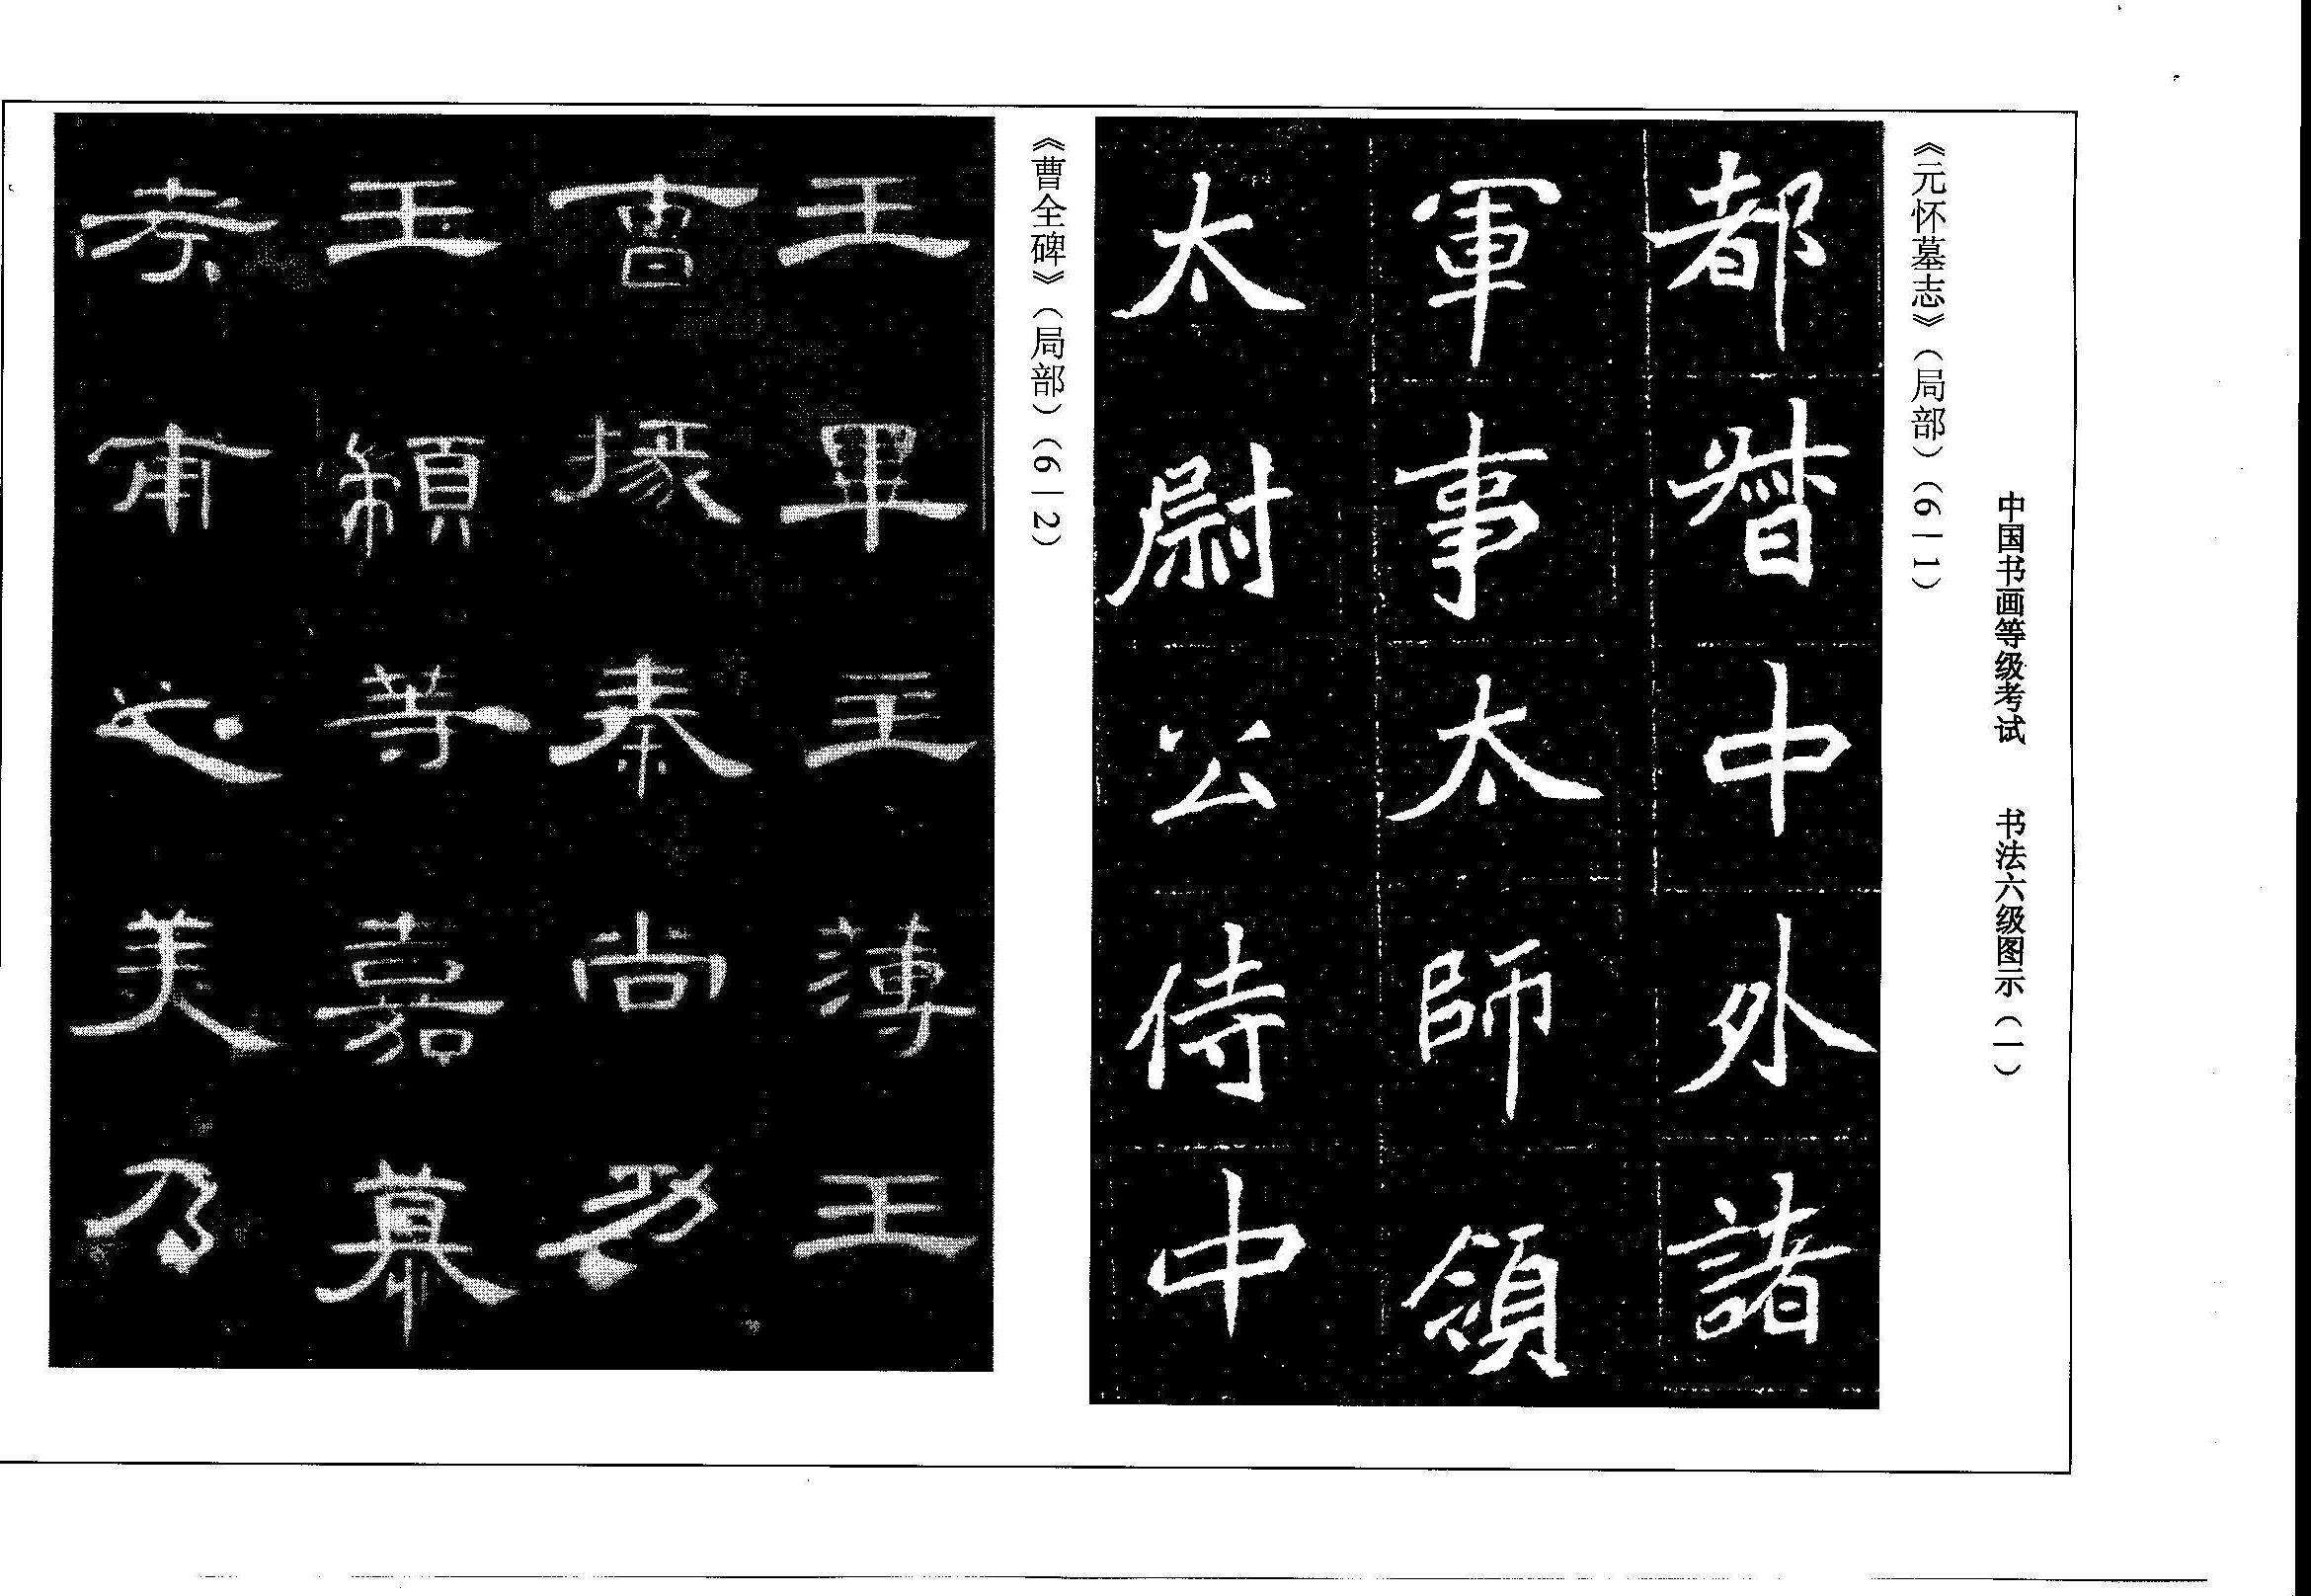 中国书画等级考试　书法六级图示（一）
《元怀墓志》（局部）（6—1）
都督中外諸
軍事太師領
太尉公侍中
《曹全碑》（局部）（6—2）
王畢主薄王
曹掾秦尚功
王顓等嘉慕
考甫之美乃